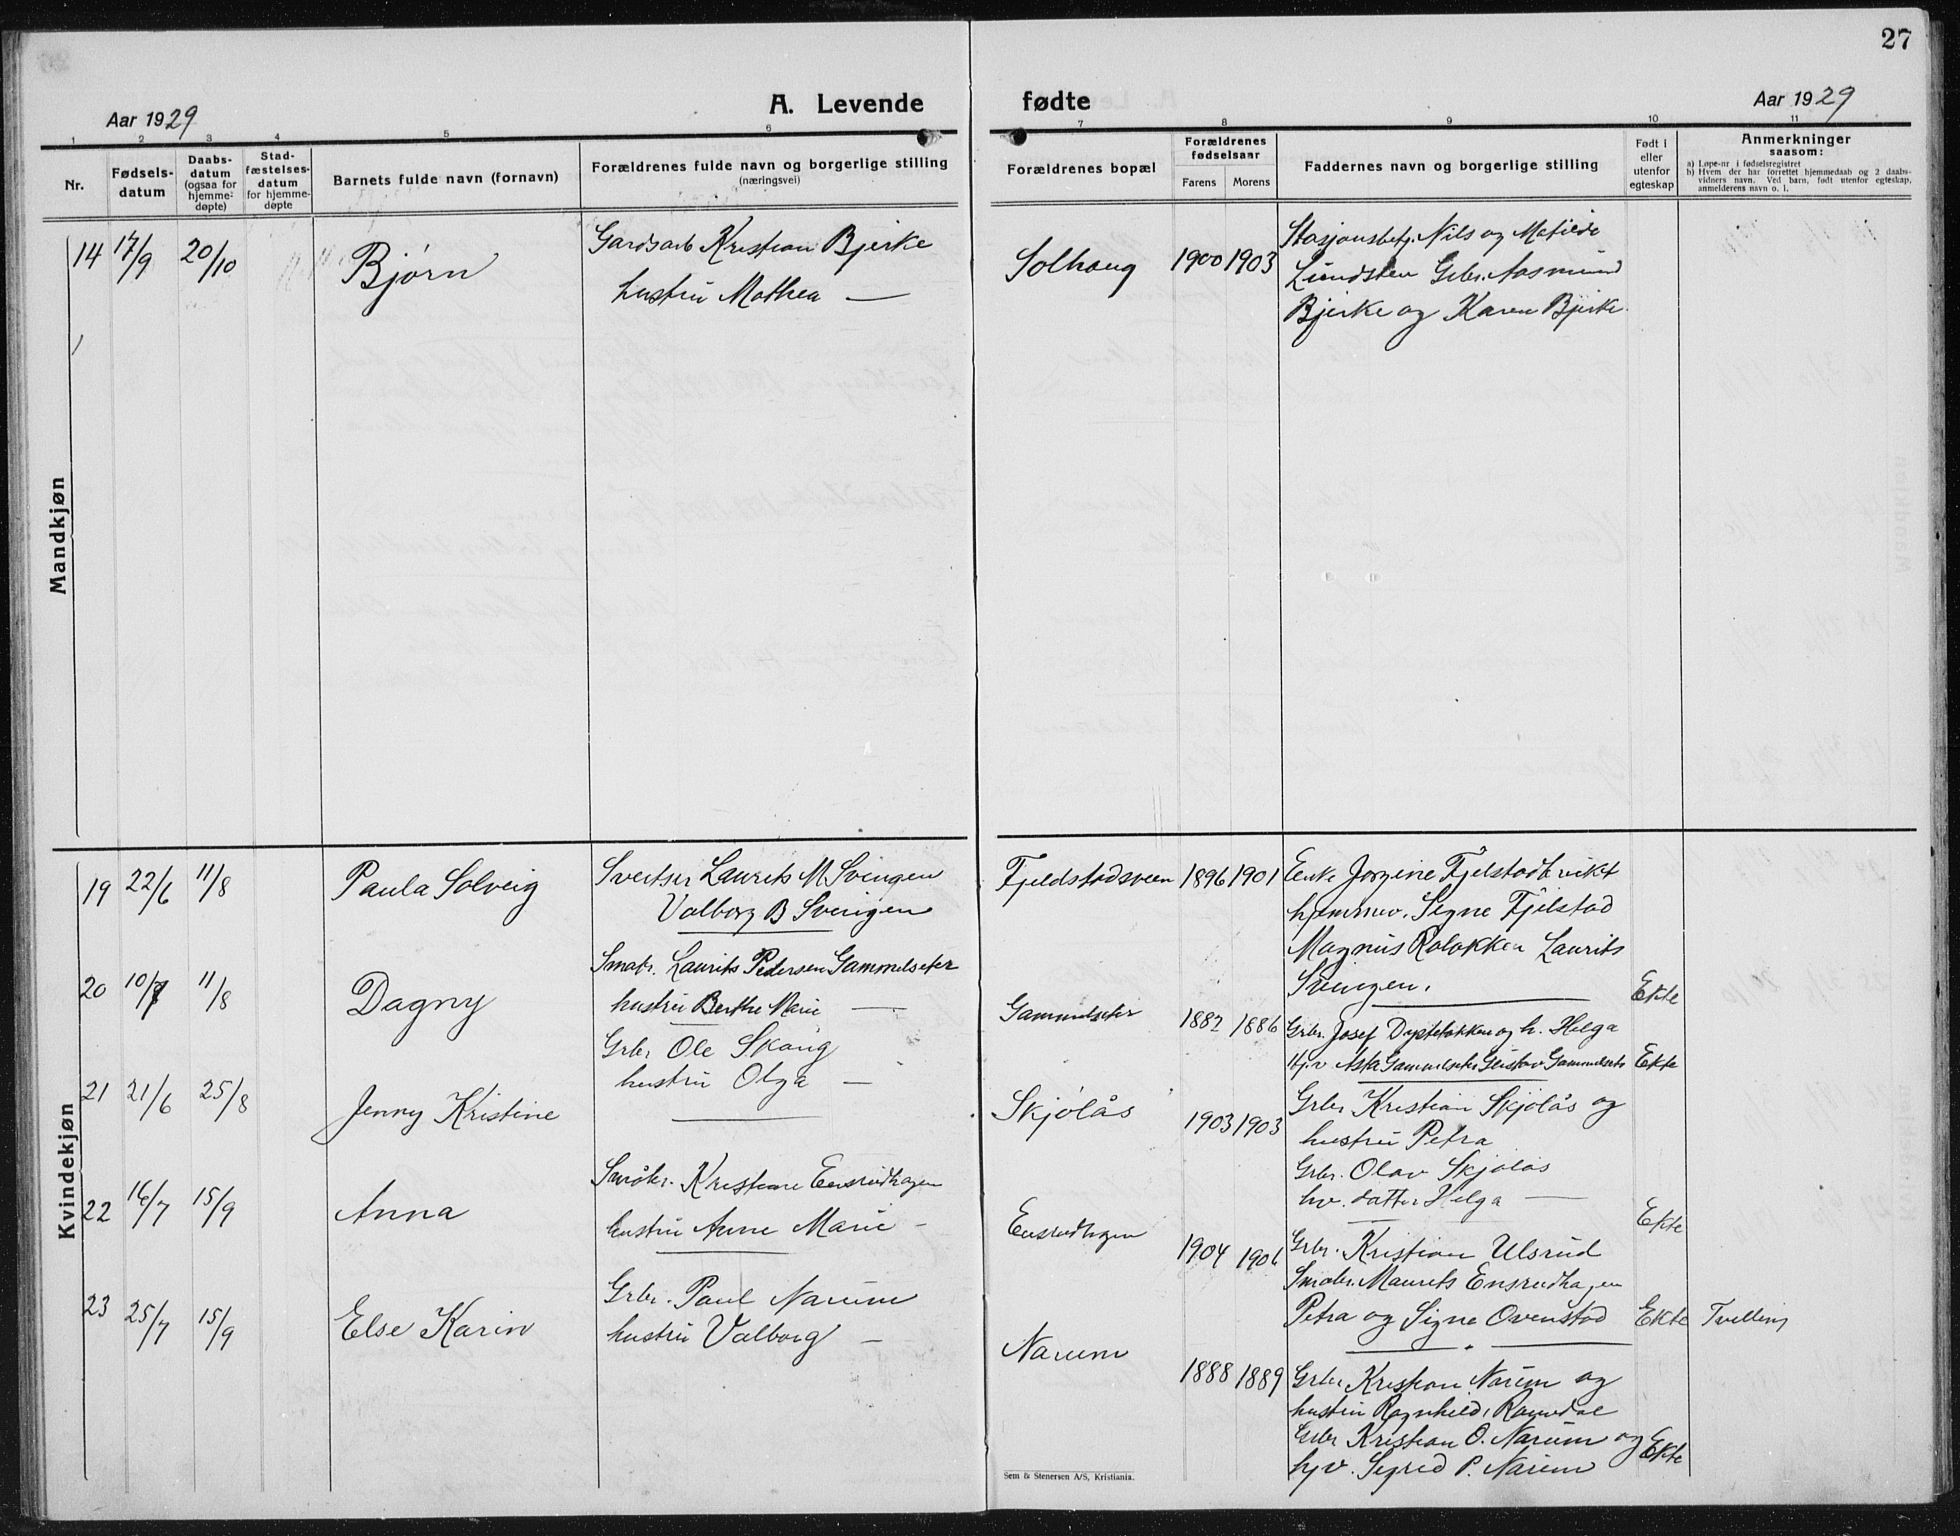 27
Aar 1929
A. Levende fødte
Aar 1929
1 2 3 4 5 6 7 8 9 10 11
Nr.
Fødsels-
datum
Daabs-
datum
(ogsaa for
hjemme-
døpte)
Stad-
fæstelses-
datum
for hjemme-
døpte
Barnets fulde navn (fornavn)
Forældrenes fulde navn og borgerlige stilling
(næringsvei)
Forældrenes bopæl
Forældrenes
fødselsaar
Farens Morens
Faddernes navn og borgerlige stilling
Født i
eller
utenfor
egteskap
Anmerkninger
saasom:
a) Løpe-nr i fødselsregistret
b) Hvem der har forrettet hjemmedaab og 2 daabs-
vidners navn. Ved barn, født utenfor egteskap,
anmelderens navn o. l.
Mandkjøn
14 17/9 20/10 Bjørn
Gardsarb Kristian Bjerke
hustru Mathea —
Solhaug 1900 1903
Stasjonsbetj. Nils og Matilde
Lundsten Grbr. Aasmund
Bjerke og Karen Bjerke.
Kvindekjøn
19 22/6 11/8 Paula Solveig
Sveitser Laurits M Svingen
Valborg B Svengen
Fjeldstadsveen 1896 1901
Enke Jorgine Fjelstad
hjemmev. Signe Fjelstad
Magnus Laurits
Svingen.
Ekte
20 10/7 11/8 Dagny
Smabr. Laurits Pedersen Gammelseter
hustru Berthe Marie —
Gammelseter 1882 1886
Grbr. Josef og h. Helga
Hjv Asta Gammelseter Gustav Gammelsete
Ekte
21 21/6 25/8 Jenny Kristine
Grbr Ole Skaug
hustru Olga —
Skjolås 1903 1903
Grbr Kristian Skjolås og
hustru Petra
Grbr. Olav Skjolås
hv. datter Helga —
Ekte
22 16/7 15/9 Anna
Småbr. Kristian Ensrudhagen
hustru Anne Marie -
Ensrudhagen 1904 1906
Grbr. Kristian Ulsrud
Småbr. Maurits Ensrudhagen
Petra og Signe Ovenstad
Ekte Tvilling
23 25/7 15/9 Else Karin
Grbr. Paul Narum
hustru Valborg —
Narum 1888 1889
Grbr Kristian Narum og
hustru Ragnhild,
Grbr Kristian O. Narum og
hjv. Sigrid P. Narum
Ekte
Sem & Stenersen A/S, Kristiania.